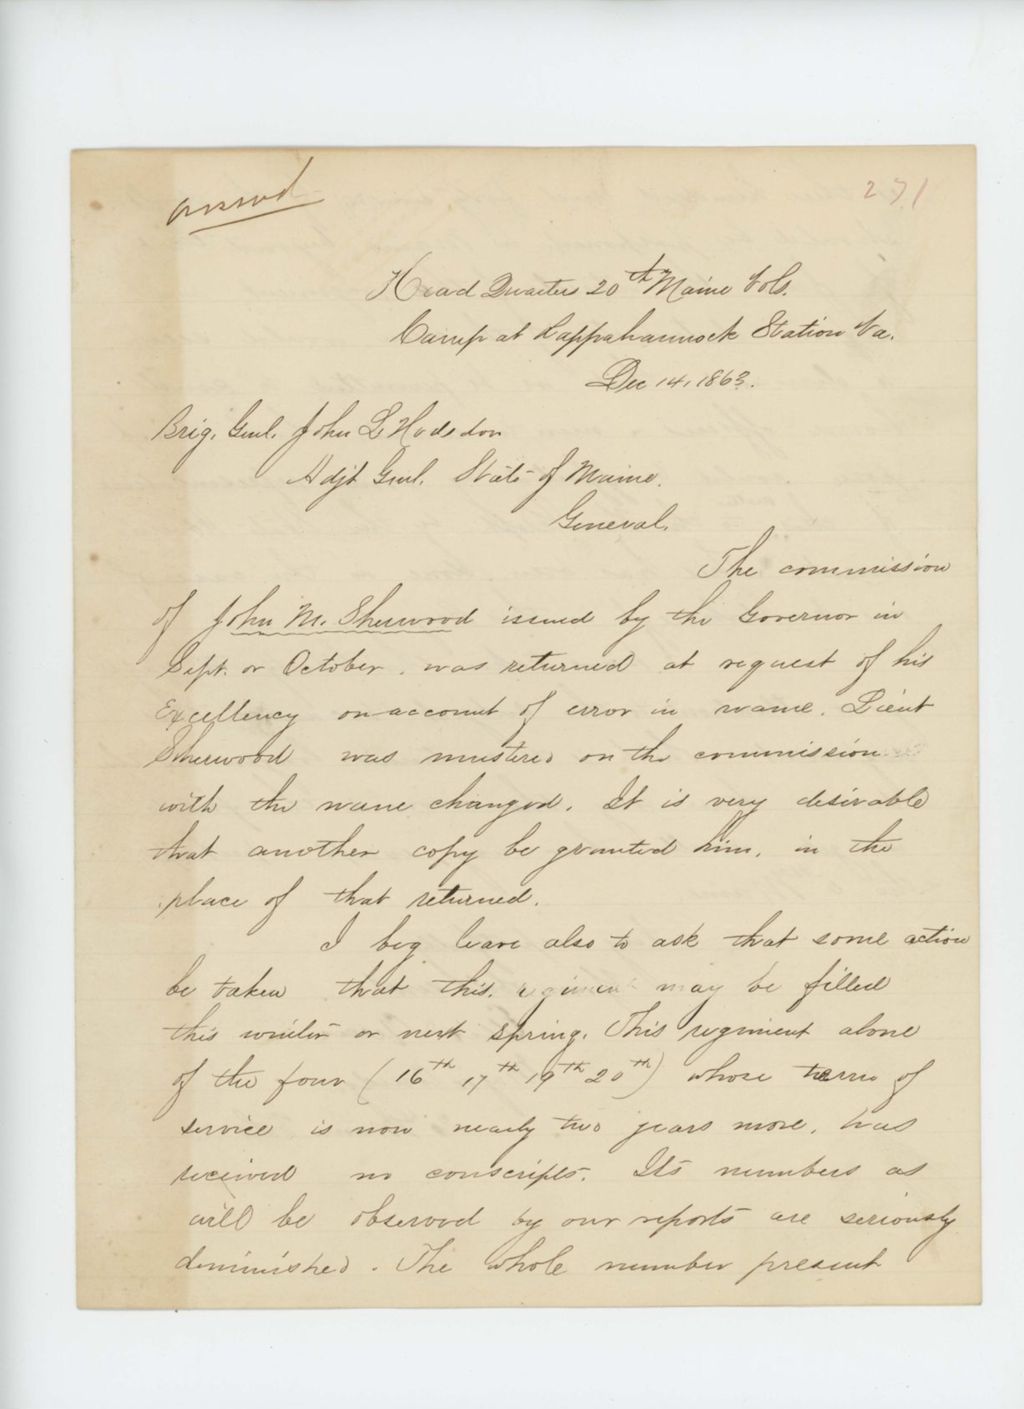 answd
271
Head Quarters 20th Maine Vols.
Camp at Rappahannock Station Va.
Dec 14, 1863.
Brig. Genl. John L Hodsdon
Adjt Genl. State of Maine.
General,
The commission
of John M. Sherwood issued by the Governor in
Sept. or October, was returned at request of his
Excellency on account of error in name. Lieut
Sherwood was mustered on the commission
with the name changed. It is very desirable
that another copy be granted him, in the
place of that returned.
I beg leave also to ask that some action
be taken that this regiment may be filled
this winter or next spring. This regiment alone
of the four (16th 17th 19th 20th) whose term of
service is now nearly two years more, has
received no conscripts. Its numbers as
will be observed by our reports are seriously
diminished. The whole number present